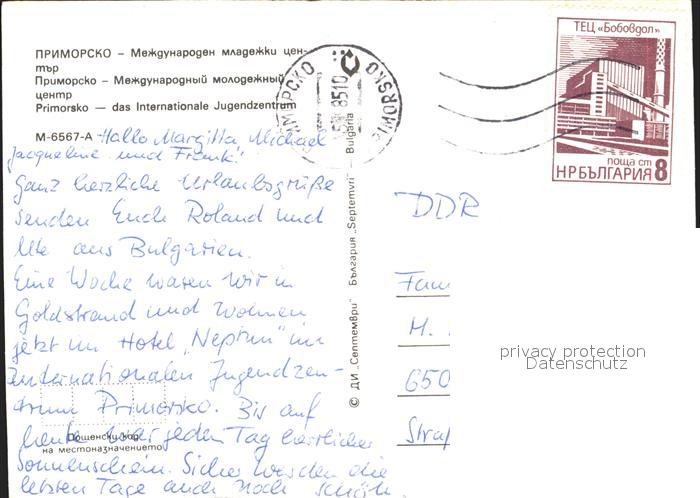 ПРИМОРСКО – Международен младежки цен-
тър
Приморско – Международный молодежный
центр
Primorsko — das Internationale Jugendzentrum
М-6567-А
Hallo Margitta, Michael
Jacqueline und Frank!
Ganz herzliche Urlaubsgrüße
senden Euch Roland und
Ute aus Bulgarien.
Eine Woche waren wir in
Goldstrand und wohnen
jetzt im Hotel „Neptun" im
Internationalen Jugendzen-
trum Primorsko. Bis auf
heute war jeden Tag herrlicher
Sonnenschein. Sicher werden die
letzten Tage auch noch schön.
Пощенски код
на местоназначението
© ДИ „Септември" България „Septemvri" — Bulgaria
ПРИМОРСКО
PRIMORSKO
ТЕЦ «Бобовдол»
поща ст
НРБЪЛГАРИЯ 8
DDR
Fam
M.
650
Straß
privacy protection
Datenschutz